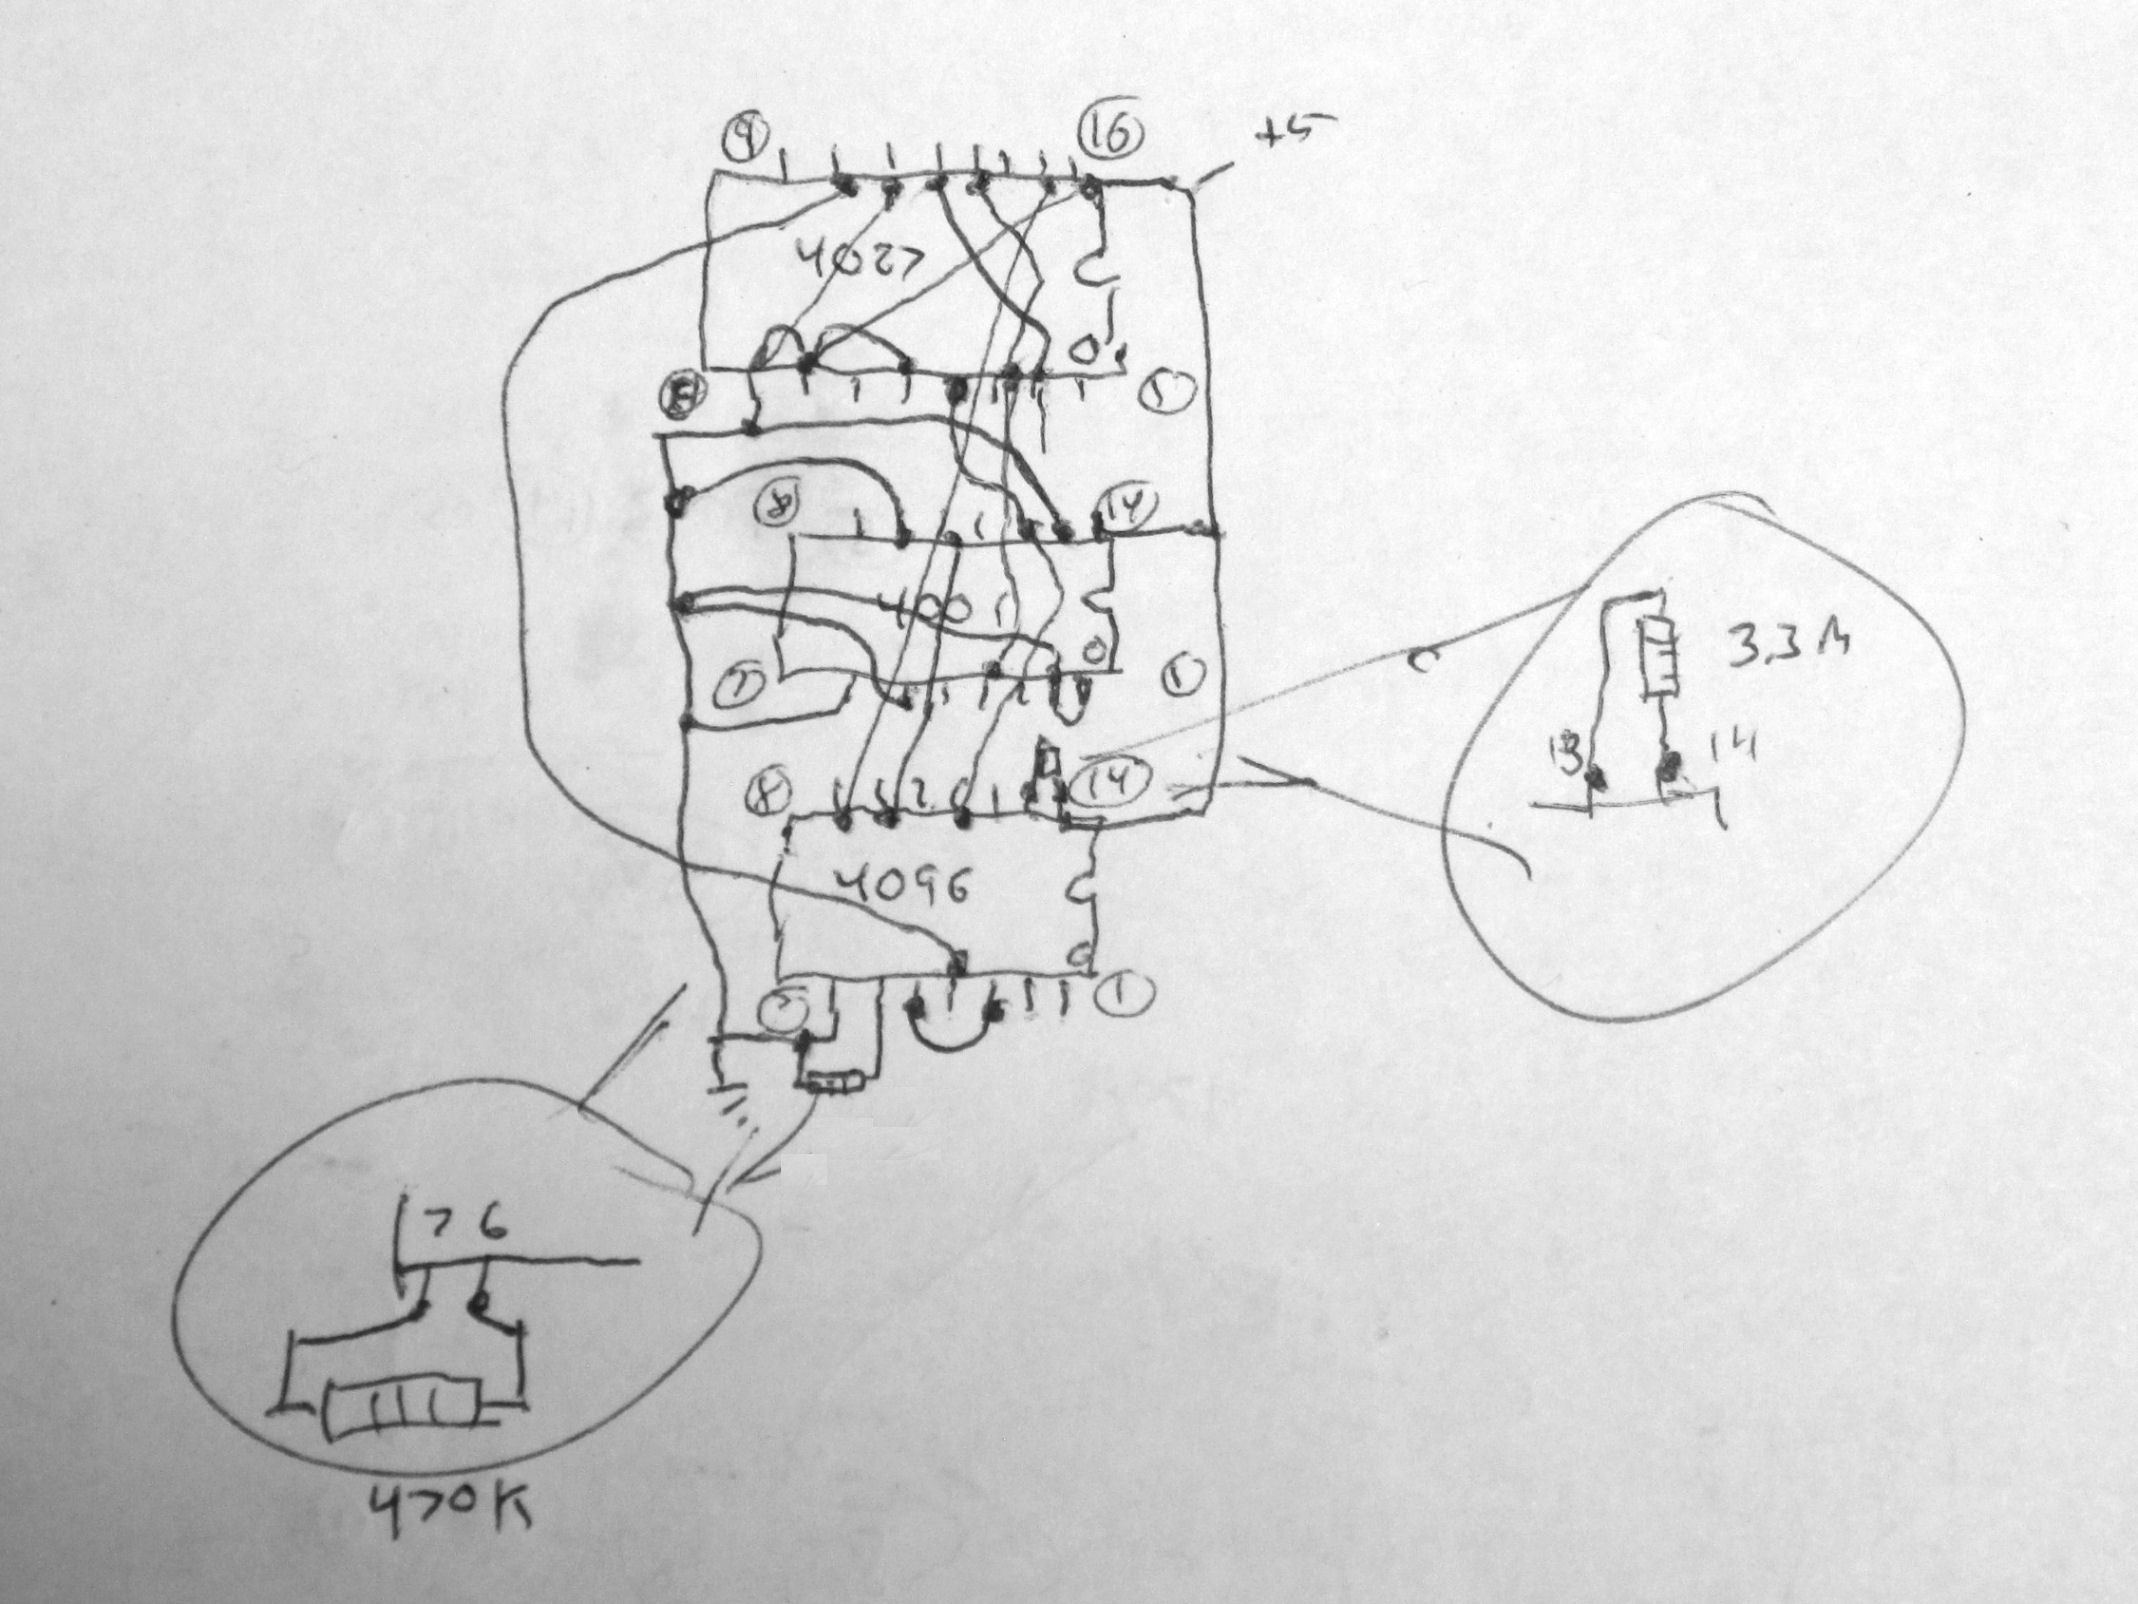 9 16 +5
4027
8 1
8 14
4001
7 1
3.3M
13 14
8 14
4096
7 1
7 6
470K